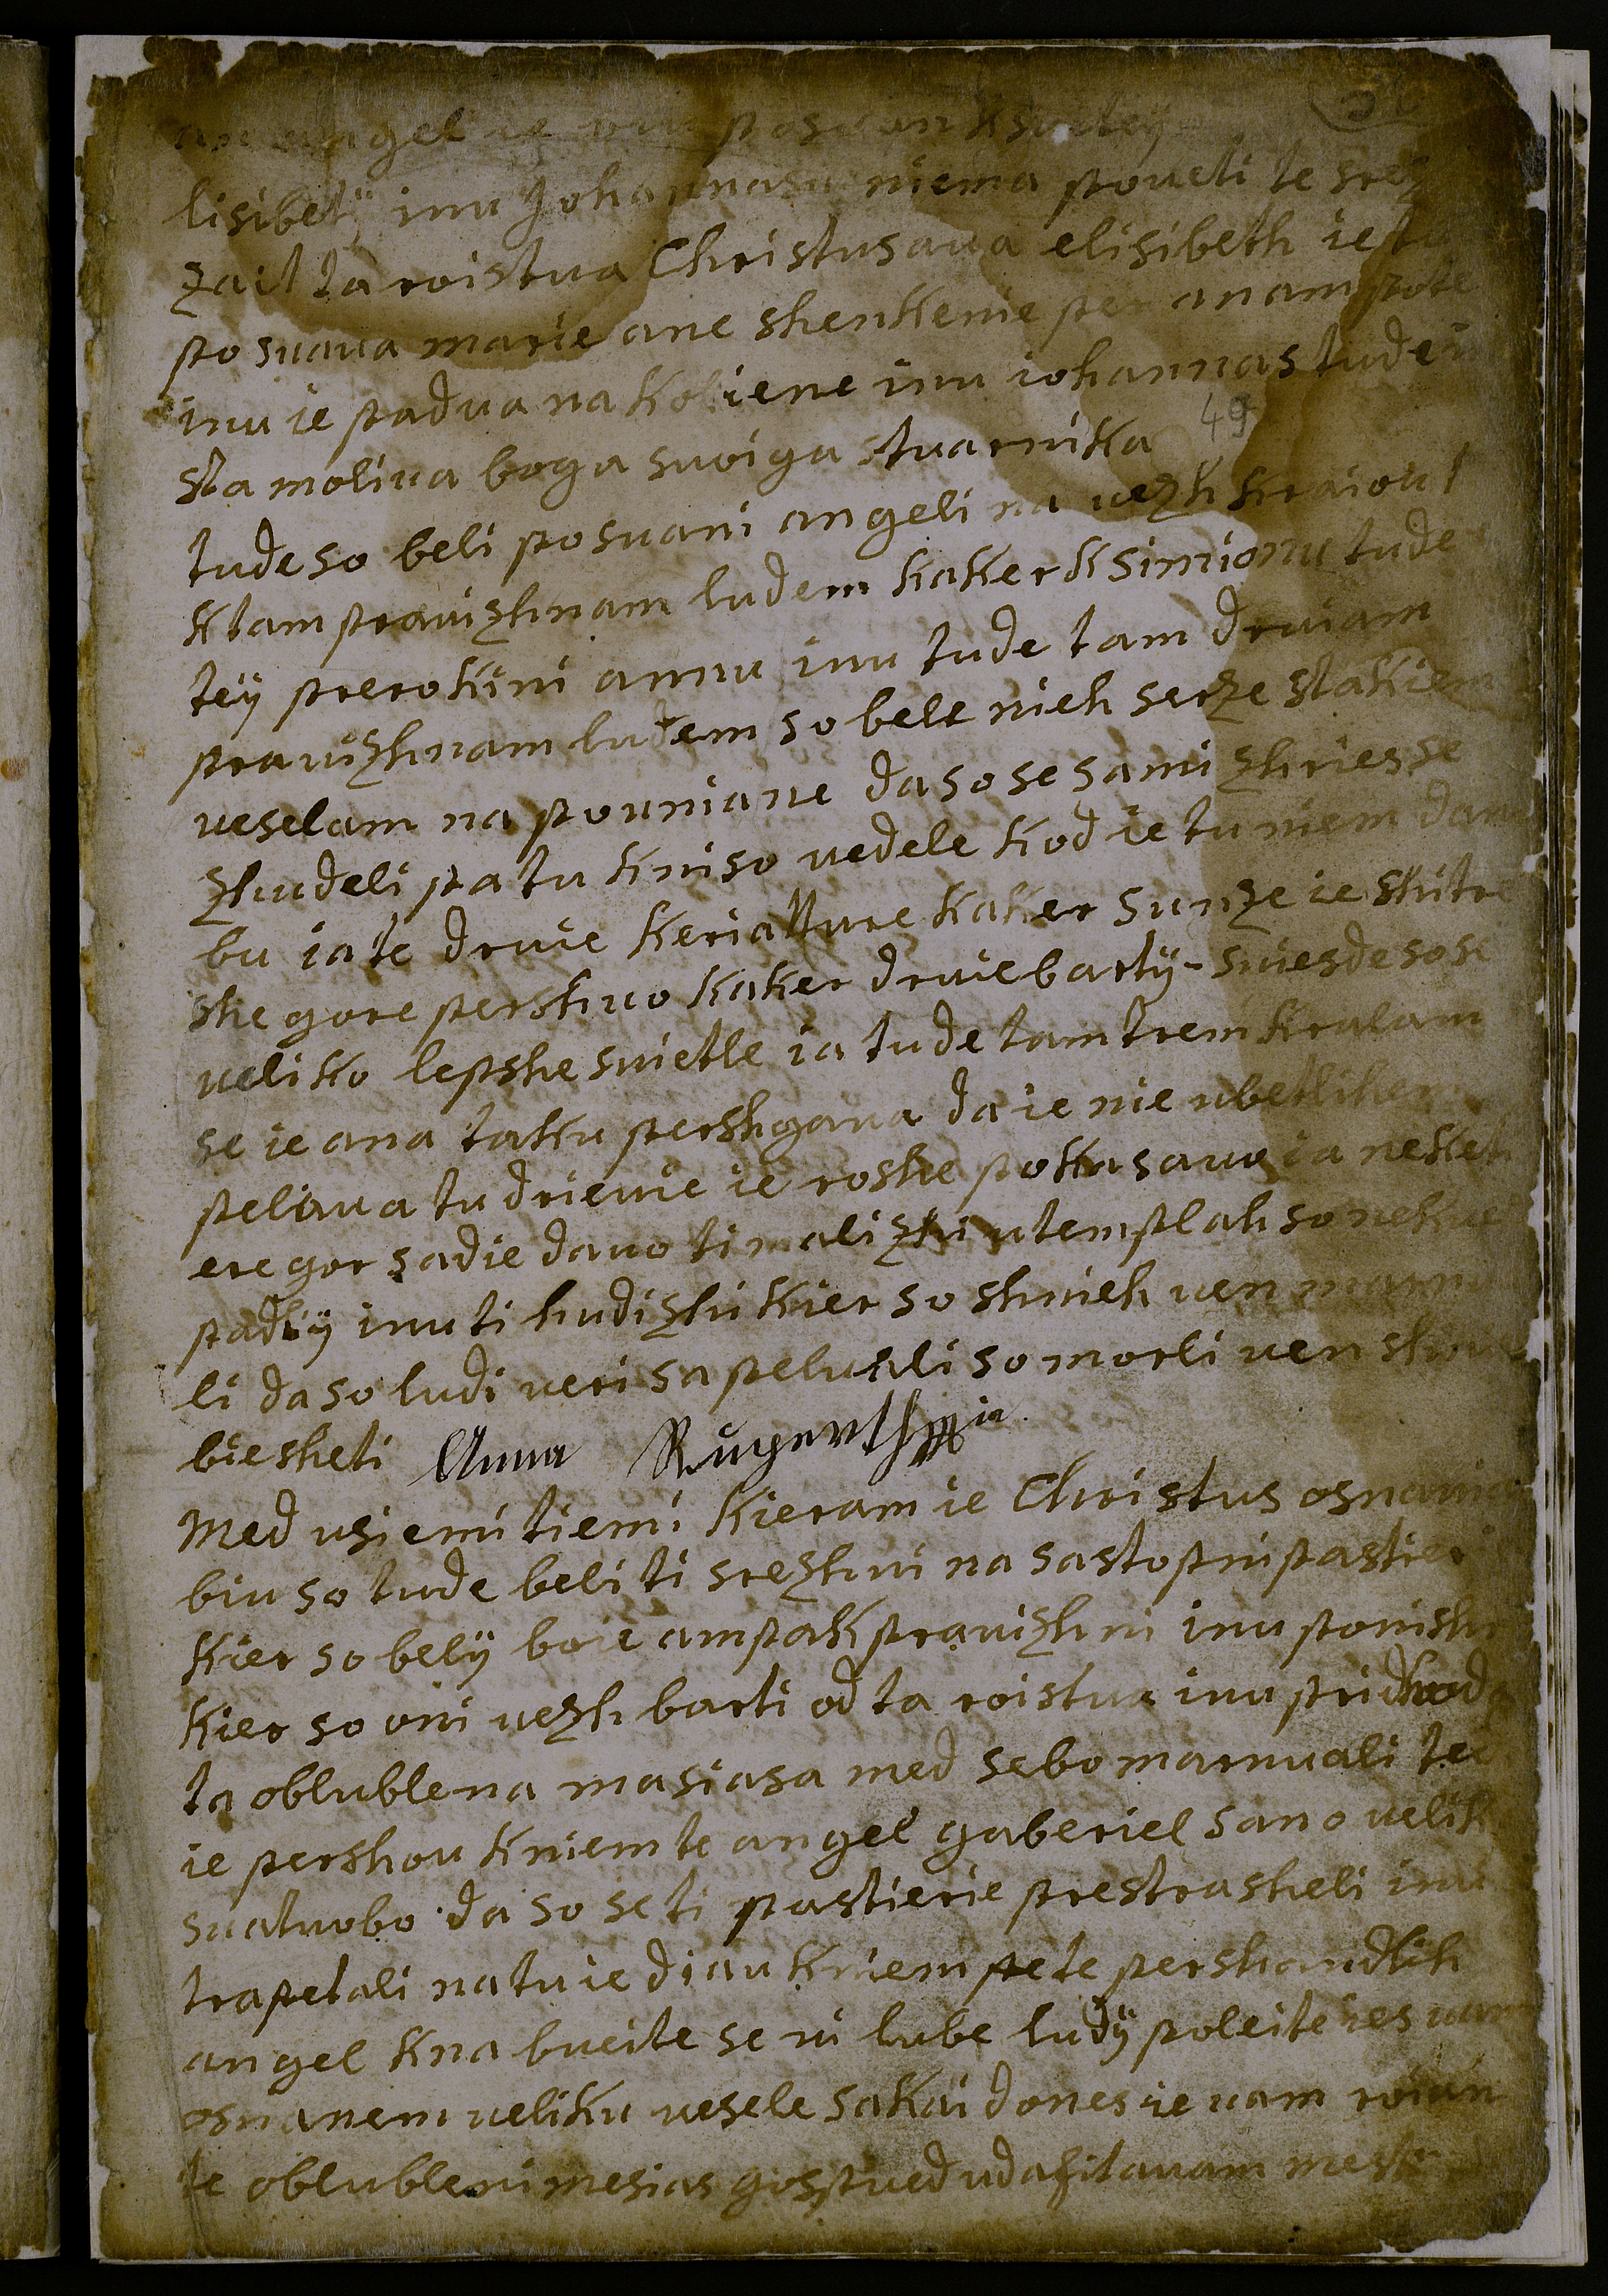 angel ie posvan ksvetey
lisibetÿ inu Johannasu niema poveti te srez
zait ta roistva Christusava elisibeth ie tu
posvava marie ane shenkenie per anam pote
inu ie padva na koliene inu iohannas tude in
sta moliva boga svoiga stvarnika 49
tude so beli posvani angeli na vezh kraiou
ktam pravizhnam ludem kaker k simionu tude
teÿ prerokini annu inu tude tam druiam
pravizhnam ludem so bele nieh serze stakiem
veselam napovniane da so se sami zhries se
zhudeli pa tu kniso vedele kod ie tu niem dan
bu ia te druie keriatture kaker sunze ie skitre
she gore pershvo kaker druie bartÿ - sviesde so se
veliko lepshe svietle ia tude tam trem kralam
se ie ana taku pershgava da ie nie vbetlihem
pelava tu drievie ie roshe pokasavo ia neketer
ere gor sadie davo ti malizhi vtemplah so nekue
padlÿ inu ti hudizhi kier so shnieh ven marnu
li da so ludi veri sapeluali so morli ven shnih
biesheti Anna Rugerthÿin
Med vsiemi tiemi kieram ie Christus osnanie
biu so tude beli ti srezhni na sastopni pastieri
kier so belÿ boie ampak pravizhni inu ponishni
kier so oni vezh barti od ta roistva inu pridhoda
ta oblublena masiasa med sebo marnuali tei
ie pershou kniem te angel gaberiel sano velik
svatuobo da so se ti pastierie prestrasheli inu
trapetali na tu ie diau kniem pete pershandlih
angel kna bueite se vi lube ludÿ poleite ies vam
osnanem veliku vesele sakai dones ie vam roien
te oblubleni mesias gospued vdafitavam mest